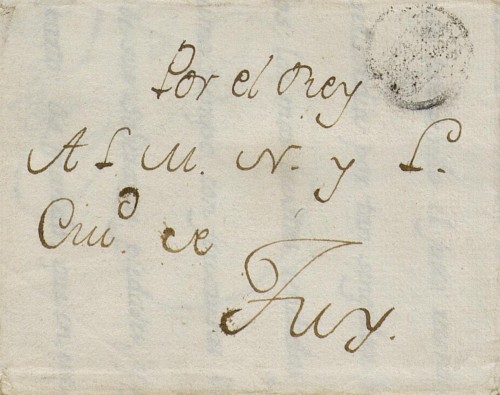 Por el Rey
A L M. N. y L.
Ciu.ᵈ de
Tuy.